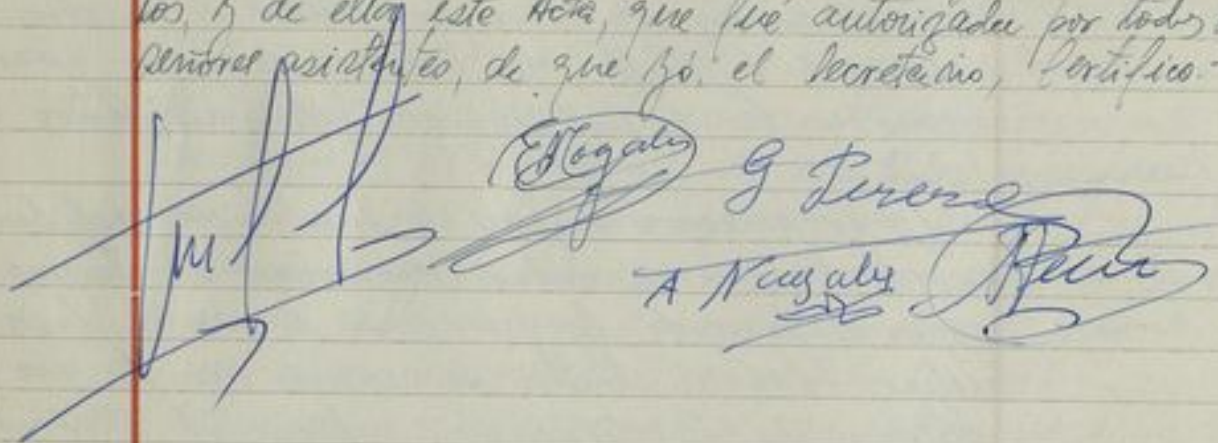 tos, y de ella, este Acta, que fué autorizada por todos
señores asistentes, de que yó, el Secretario, Certifico.-
ENogales
G Perera
A Nogales